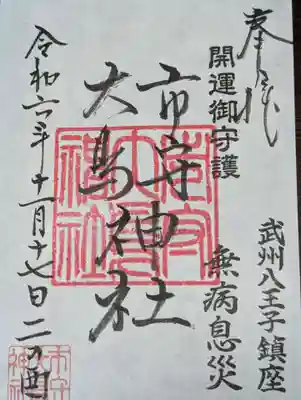 奉拝
開運御守護
無病息災
武州八王子鎮座
市守神社
大鳥神社
令和六年十一月十七日二の酉